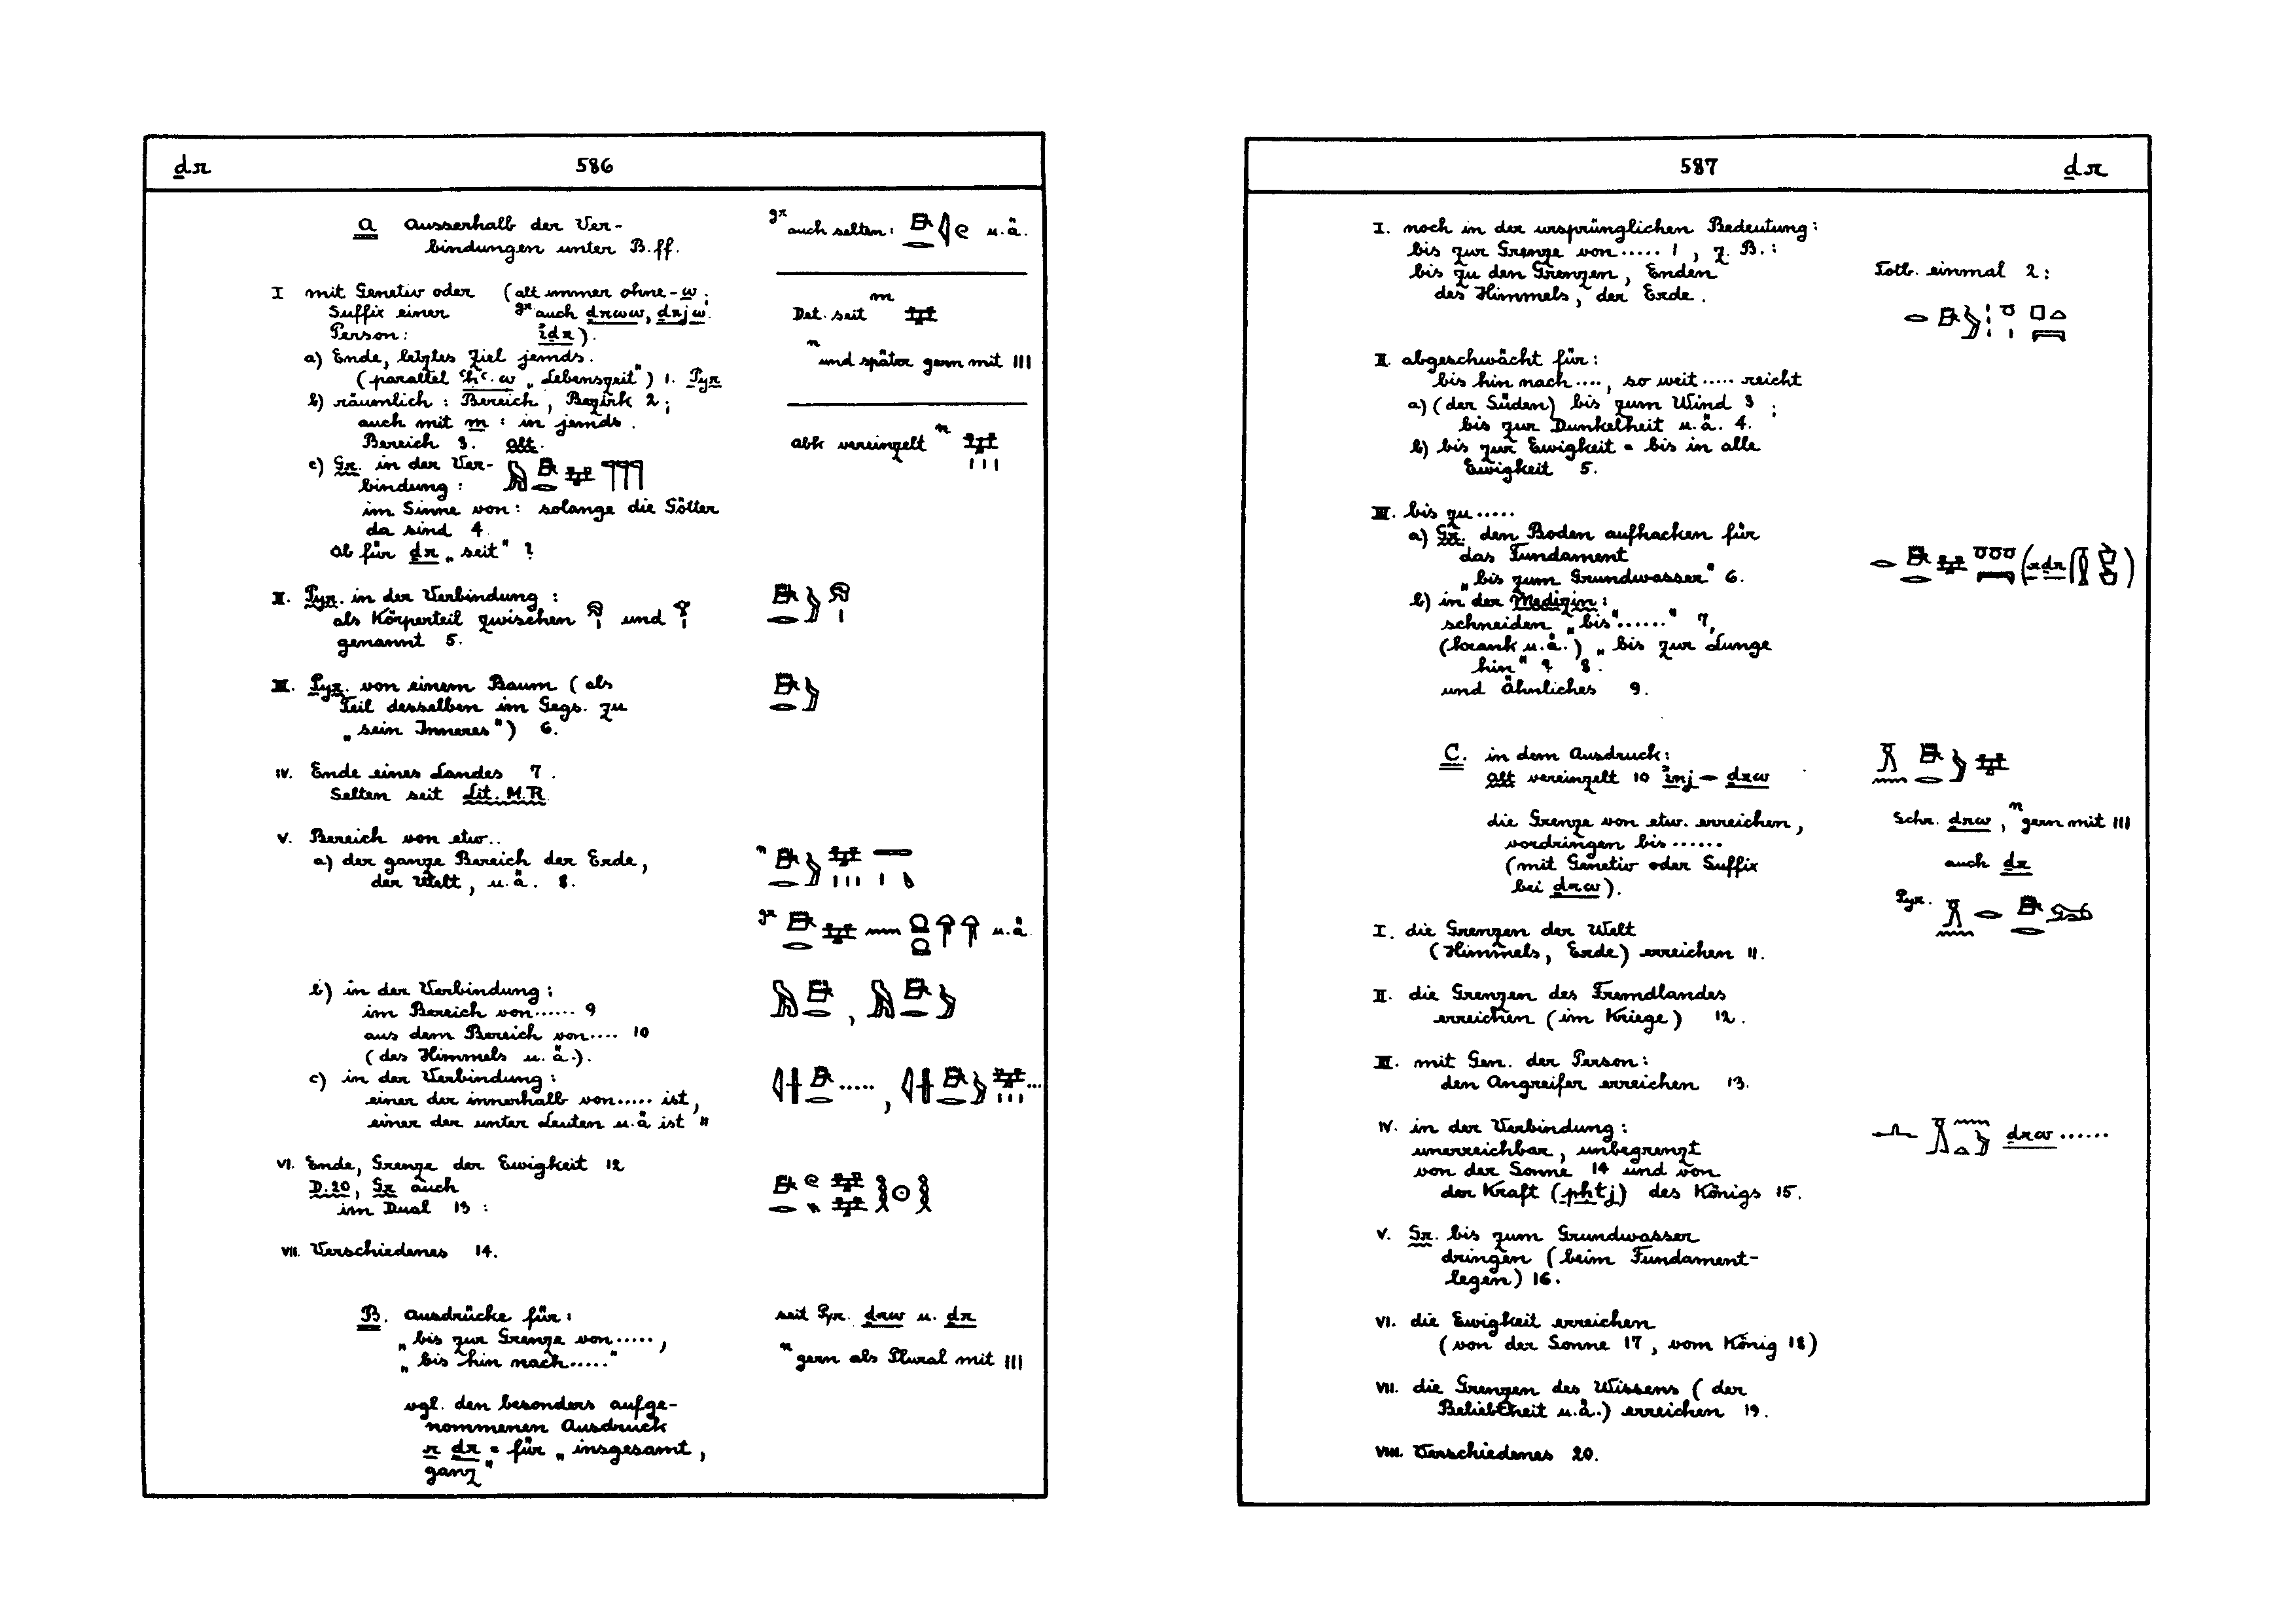 ḏr 586
A Ausserhalb der Ver-
bindungen unter B.ff.
I mit Genetiv oder (alt immer ohne -w;
Suffix einer gr auch ḏrww, ḏrjw.
Person: iḏr).
a) Ende, letztes Ziel jemds.
(parallel ꜥḥꜥ.w „Lebenszeit") 1. Pyr
b) räumlich: Bereich, Bezirk 2;
auch mit m: in jemds.
Bereich 3. Alt.
c) Gr. in der Ver-
bindung:
im Sinne von: solange die Götter
da sind 4
Ob für ḏr „seit" ?
II. Pyr. in der Verbindung:
als Körperteil zwischen und
genannt 5.
III. Pyr. von einem Baum (als
Teil desselben im Gegs. zu
„sein Inneres") 6.
IV. Ende eines Landes 7.
Selten seit Lit. M.R.
V. Bereich von etw..
a) der ganze Bereich der Erde,
der Welt, u.ä. 8.
b) in der Verbindung:
im Bereich von...... 9
aus dem Bereich von.... 10
(des Himmels u.ä.).
c) in der Verbindung:
einer der innerhalb von..... ist,
einer der unter Leuten u.ä ist 11
VI. Ende, Grenze der Ewigkeit 12
D.20, Gr auch
im Dual 13:
VII. Verschiedenes 14.
B. Ausdrücke für:
„bis zur Grenze von.....,
„bis hin nach....."
vgl. den besonders aufge-
nommenen Ausdruck
r ḏr = für „insgesamt,
ganz"
gr auch selten: u.ä.
Det. seit m
n und später gern mit III
abk vereinzelt n
n
gr u.ä.
,
....., ...
seit Pyr. ḏrw u. ḏr
n gern als Plural mit III
587 ḏr
I. noch in der ursprünglichen Bedeutung:
bis zur Grenze von..... 1, z.B.:
bis zu den Grenzen, Enden
des Himmels, der Erde.
II. abgeschwächt für:
bis hin nach...., so weit..... reicht
a) (der Süden) bis zum Wind 3;
bis zur Dunkelheit u.ä. 4.
b) bis zur Ewigkeit = bis in alle
Ewigkeit 5.
III. bis zu.....
a) Gr. den Boden aufhacken für
das Fundament
„bis zum Grundwasser" 6.
b) in der Medizin:
schneiden „bis"......" 7,
(krank u.ä.) „bis zur Lunge
hin" ? 8.
und Ähnliches 9.
C. in dem Ausdruck:
Alt vereinzelt 10 inj - ḏrw
die Grenze von etw. erreichen,
vordringen bis......
(mit Genetiv oder Suffix
bei ḏrw).
I. die Grenzen der Welt
(Himmels, Erde) erreichen 11.
II. die Grenzen des Fremdlandes
erreichen (im Kriege) 12.
III. mit Gen. der Person:
den Angreifer erreichen 13.
IV. in der Verbindung:
unerreichbar, unbegrenzt
von der Sonne 14 und von
der Kraft (pḥtj) des Königs 15.
V. Gr. bis zum Grundwasser
dringen (beim Fundament-
legen) 16.
VI. die Ewigkeit erreichen
(von der Sonne 17, vom König 18)
VII. die Grenzen des Wissens (der
Beliebtheit u.ä.) erreichen 19.
VIII. Verschiedenes 20.
Totb. einmal 2:
(r ḏr )
Schr. ḏrw, n gern mit III
auch ḏr
Pyr.
ḏrw......